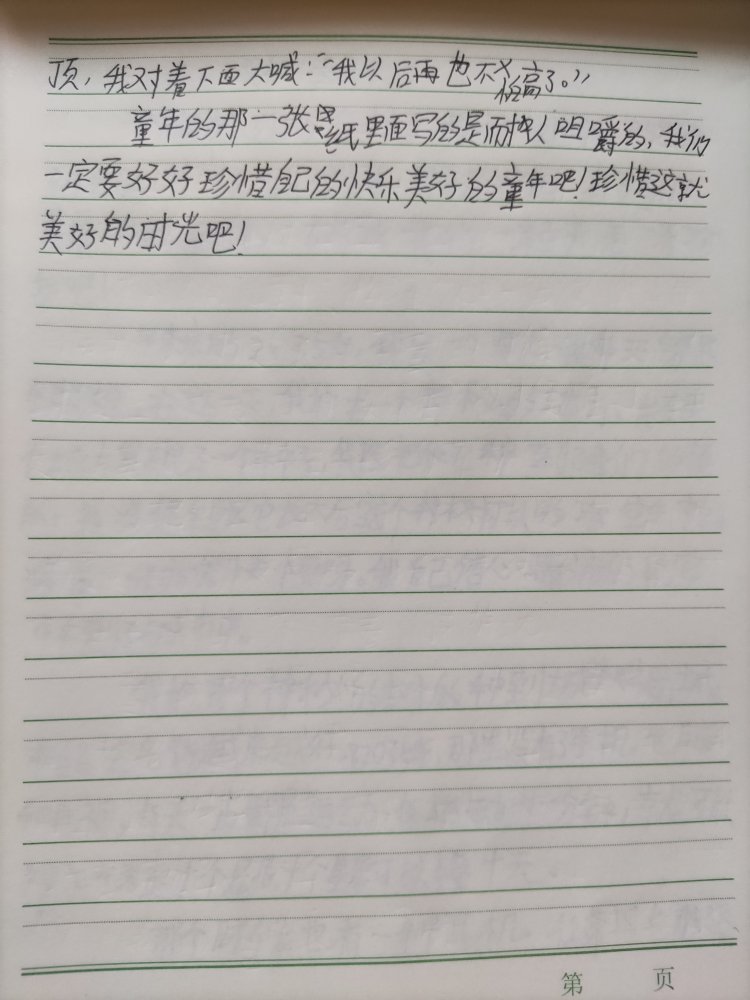 顶，我对着下面大喊：“我以后再也不怕高了。”
童年的那一张纸里面写的是耐人咀嚼的，我们
一定要好好珍惜自己的快乐美好的童年吧！珍惜这就
美好的时光吧！
第 页